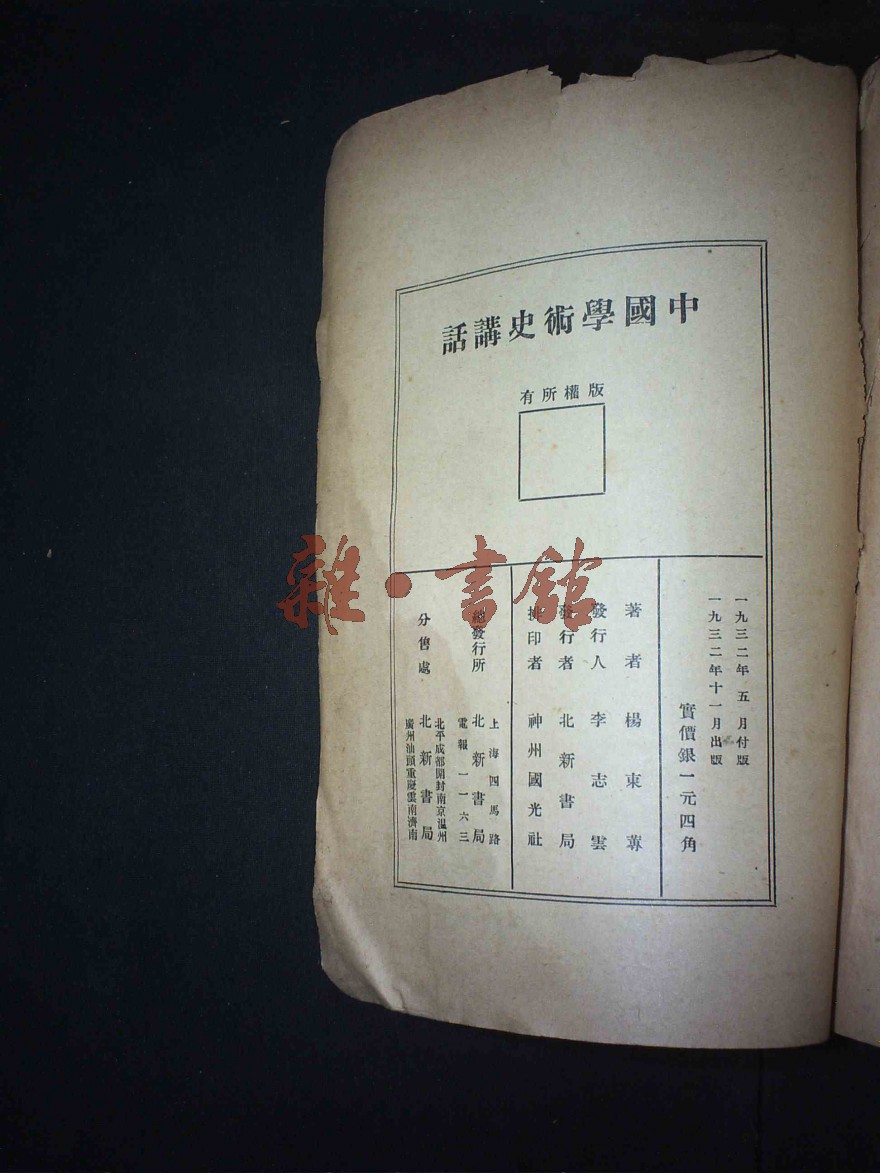 中國學術史講話
版權所有
一九三二年五月付版
一九三二年十一月出版
實價銀一元四角
著者 楊東蓴
發行人 李志雲
發行者 北新書局
排印者 神州國光社
總發行所 上海四馬路 北新書局 電報一一六三
分售處 北平成都開封南京溫州 北新書局 廣州汕頭重慶雲南濟南
雜·書館